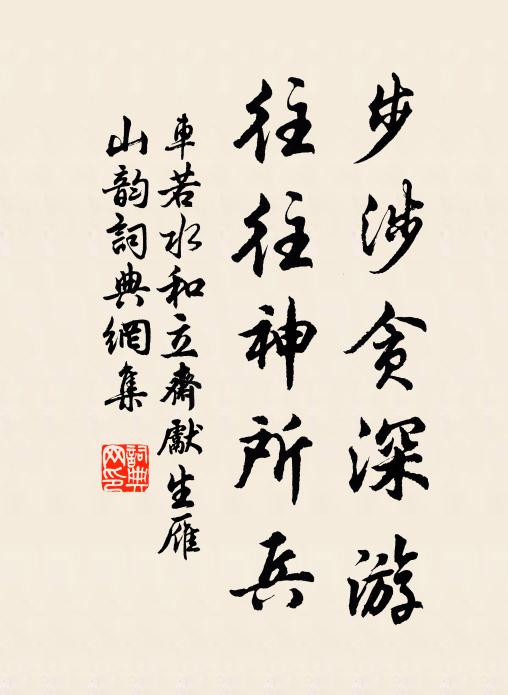 步涉贪深游
往往神所兵
車若水和立齋獻生雁
山韵詞典網集
詞典网印